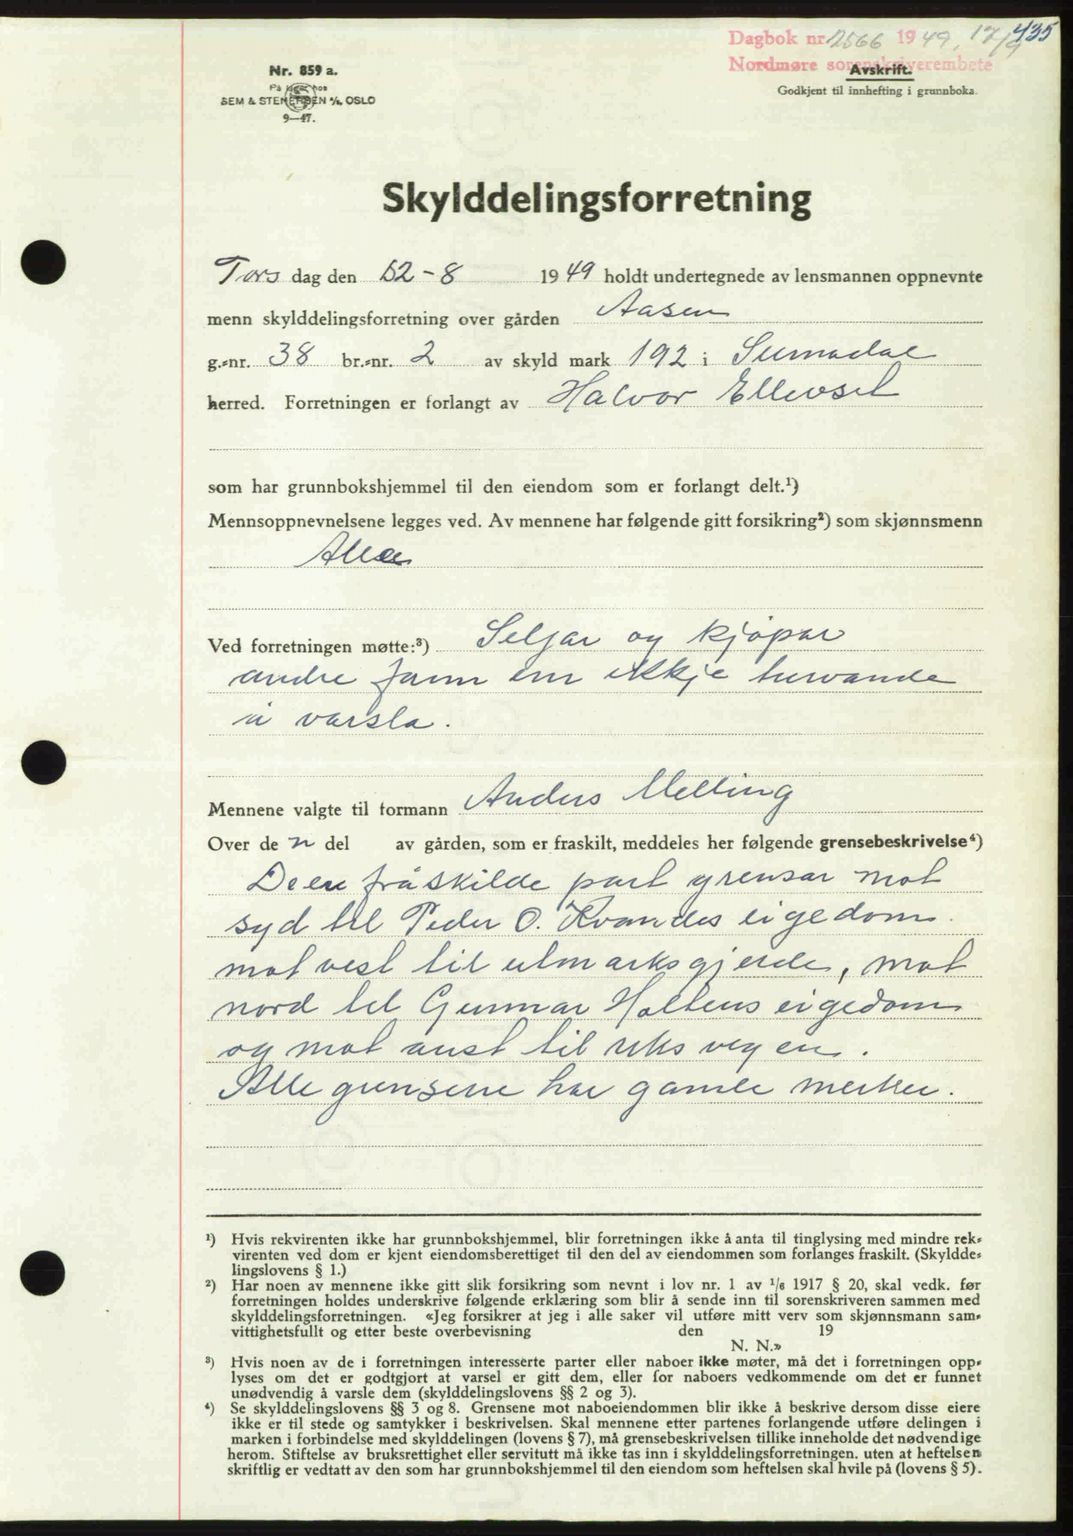 435
Dagbok nr. 2566 1949, 17/9
Nordmøre sorenskriverembete
Nr. 859 a.
På lager hos
SEM & STENERSEN A/S, OSLO
9—47.
Avskrift.
Godkjent til innhefting i grunnboka.
Skylddelingsforretning
Tors dag den 12-8 1949 holdt undertegnede av lensmannen oppnevnte
menn skylddelingsforretning over gården Aasen
g.-nr. 38 br.-nr. 2 av skyld mark 192 i Surnadal
herred. Forretningen er forlangt av Halvor Ellevset
som har grunnbokshjemmel til den eiendom som er forlangt delt.¹)
Mennsoppnevnelsene legges ved. Av mennene har følgende gitt forsikring²) som skjønnsmenn
Alle
Ved forretningen møtte:³) Seljar og kjøpar
andre fann ein ikkje turvande
å varsla.
Mennene valgte til formann Anders Melling
Over de n del av gården, som er fraskilt, meddeles her følgende grensebeskrivelse⁴)
Deen fråskilde part grensar mot
syd til Peder O. Kvandes eigedom.
mot vest til utmarksgjerde, mot
nord til Gunnar Holtens eigedom
og mot aust til riksvegen.
Alle grensene har gamle merker.
¹) Hvis rekvirenten ikke har grunnbokshjemmel, blir forretningen ikke å anta til tinglysing med mindre rek-
virenten ved dom er kjent eiendomsberettiget til den del av eiendommen som forlanges fraskilt. (Skyldde-
lingslovens § 1.)
²) Har noen av mennene ikke gitt slik forsikring som nevnt i lov nr. 1 av ¹/₆ 1917 § 20, skal vedk. før
forretningen holdes underskrive følgende erklæring som blir å sende inn til sorenskriveren sammen med
skylddelingsforretningen. «Jeg forsikrer at jeg i alle saker vil utføre mitt verv som skjønnsmann sam-
vittighetsfullt og etter beste overbevisning den 19
N. N.»
³) Hvis noen av de i forretningen interesserte parter eller naboer ikke møter, må det i forretningen opp-
lyses om det er godtgjort at varsel er gitt dem, eller for naboers vedkommende om det er funnet
unødvendig å varsle dem (skylddelingslovens §§ 2 og 3).
⁴) Se skylddelingslovens §§ 3 og 8. Grensene mot naboeiendommen blir ikke å beskrive dersom disse eiere
ikke er til stede og samtykker i beskrivelsen. Skal mennene etter partenes forlangende utføre delingen i
marken i forbindelse med skylddelingen (lovens § 7), må grensebeskrivelsen tillike inneholde det nødvendige
herom. Stiftelse av bruksrettighet eller servitutt må ikke tas inn i skylddelingsforretningen, uten at heftelsen
skriftlig er vedtatt av den som har grunnbokshjemmel til den eiendom som heftelsen skal hvile på (lovens § 5).